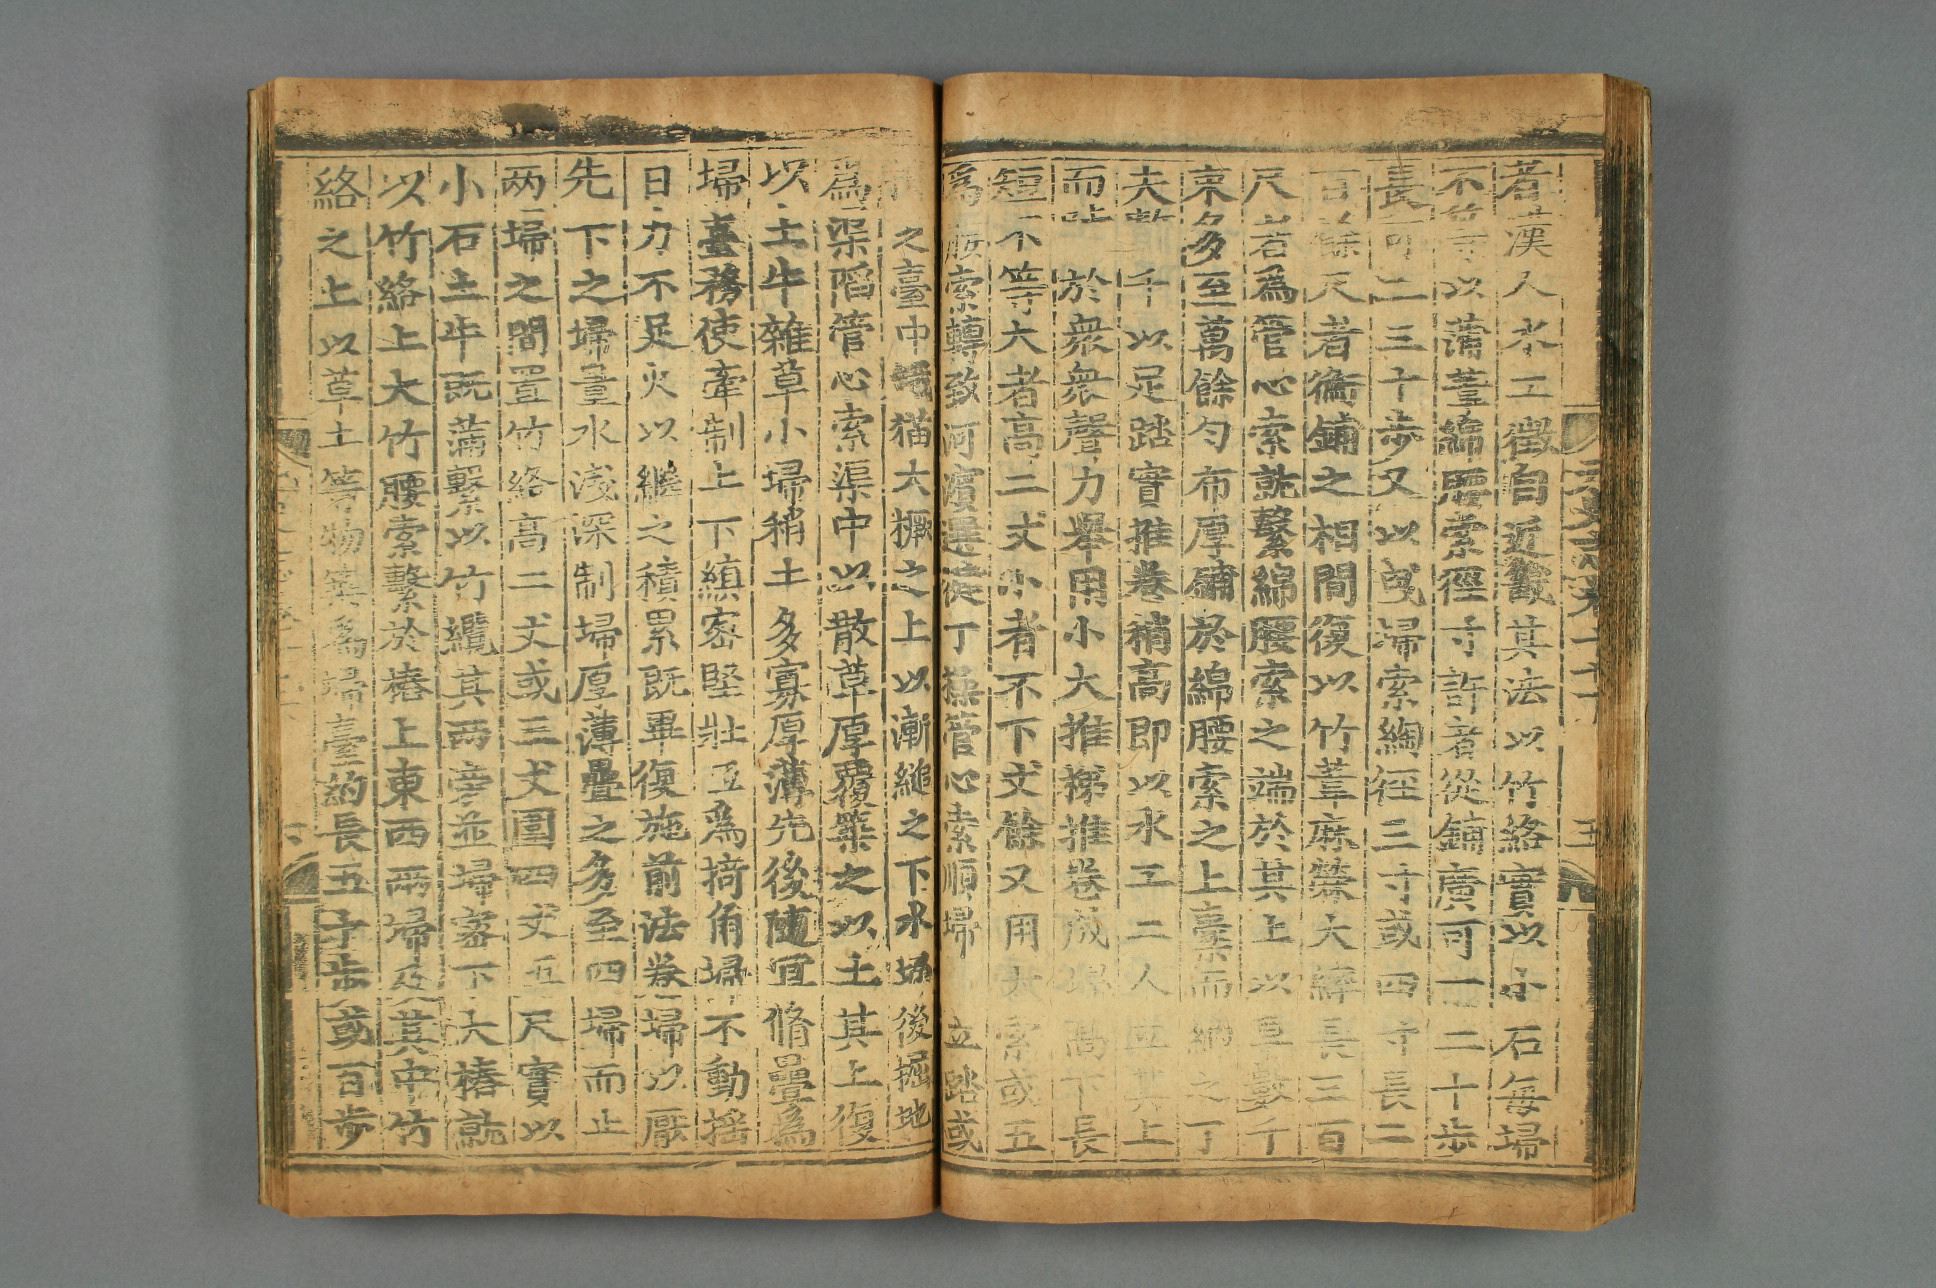 者漢人水工徵自近畿其法以竹絡實以小石每埽
不等以蒲葦綿腰索徑寸許者從鋪廣可一二十步
長可二三十步又以曳埽索綯徑三寸或四寸長二
百餘尺者衡鋪之相間復以竹葦麻檾大繂長三百
尺者為管心索就繫綿腰索之端於其上以草數千
束多至萬餘勻布厚鋪於綿腰索之上櫜而納之丁
夫數千以足踏實推卷稍高即以水工二人立其上
而號於衆衆聲力舉用小大推梯推卷成埽高下長
短不等大者高二丈小者不下丈餘又用大索或五
為腰索轉致河濱選健丁操管心索順埽立踏或
之臺中鐵猫大橛之上以漸縋之下水埽後掘地
為渠陷管心索渠中以散草厚覆築之以土其上復
以土牛雜草小埽稍土多寡厚薄先後隨宜脩疊為
埽臺務使牽制上下縝密堅壯互為掎角埽不動搖
日力不足火以繼之積累既畢復施前法卷埽以厭
先下之埽量水淺深制埽厚薄疊之多至四埽而止
兩埽之間置竹絡高二丈或三丈圍四丈五尺實以
小石土牛既滿繫以竹纜其兩旁並埽密下大樁就
以竹絡上大竹腰索繫於樁上東西兩埽及其中竹
絡之上以草土等物築為埽臺約長五十步或百步